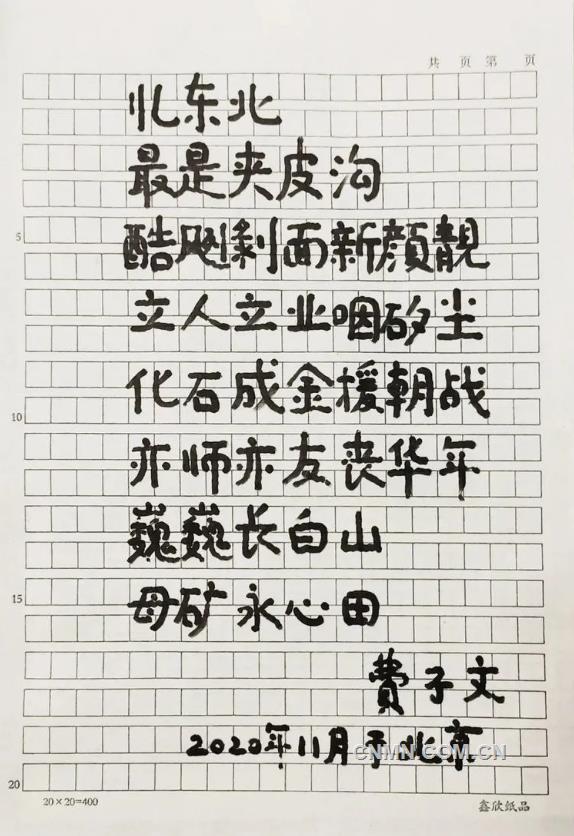 共 页 第 页
忆东北
最是夹皮沟
酷飕剌面新颜靓
5
立人立业咽矽尘
化石成金援朝战
10
亦师亦友丧华年
巍巍长白山
母矿永心田
15
费子文
2020年11月于北京
CNMN.COM.CN
20
20×20=400
鑫欣纸品